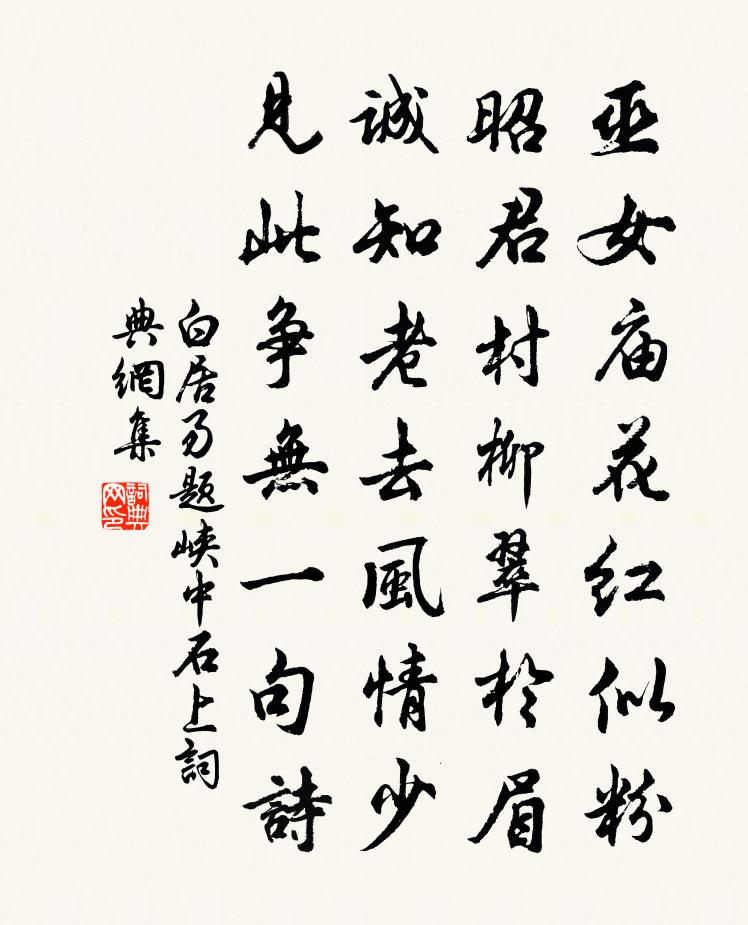 巫女庙花红似粉
昭君村柳翠於眉
誠知老去風情少
見此爭無一句詩
白居易题峡中石上詞
典網集
詞典
网印